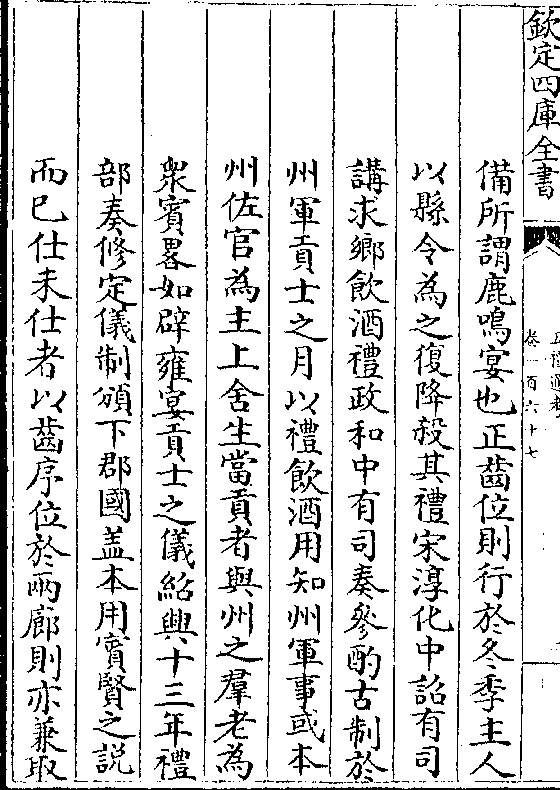 欽定四庫全書
卷一百六十七
備所謂鹿鳴宴也正齒位則行於冬季主人
以縣令為之復降殺其禮宋淳化中詔有司
講求鄉飲酒禮政和中有司奏參酌古制於
州軍貢士之月以禮飲酒用知州軍事或本
州佐官為主上舍生當貢者與州之羣老為
衆賓畧如辟雍宴貢士之儀紹興十三年禮
部奏修定儀制頒下郡國蓋本用賓賢之説
而已仕未仕者以齒序位於兩廊則亦兼取